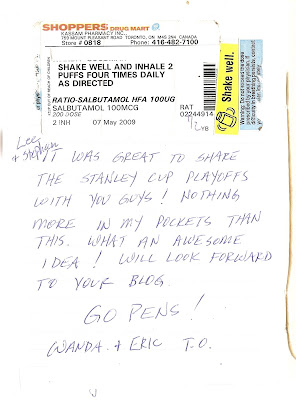 SHOPPERS DRUG MART
KASSAM PHARMACY INC.
759 MOUNT PLEASANT ROAD TORONTO, ON M4S 2N4, CANADA
Store # 0818 Phone: 416-482-7100
SHAKE WELL AND INHALE 2
PUFFS FOUR TIMES DAILY
AS DIRECTED
RATIO-SALBUTAMOL HFA 100UG
SALBUTAMOL 100MCG RAT
200 DOSE 02244914
2 INH 07 May 2009
Shake well.
Lee
+ Stephen
IT WAS GREAT TO SHARE
THE STANLEY CUP PLAYOFFS
WITH YOU GUYS! NOTHING
MORE IN MY POCKETS THAN
THIS. WHAT AN AWESOME
IDEA! WILL LOOK FORWARD
TO YOUR BLOG.
GO PENS!
WANDA + ERIC T.O.